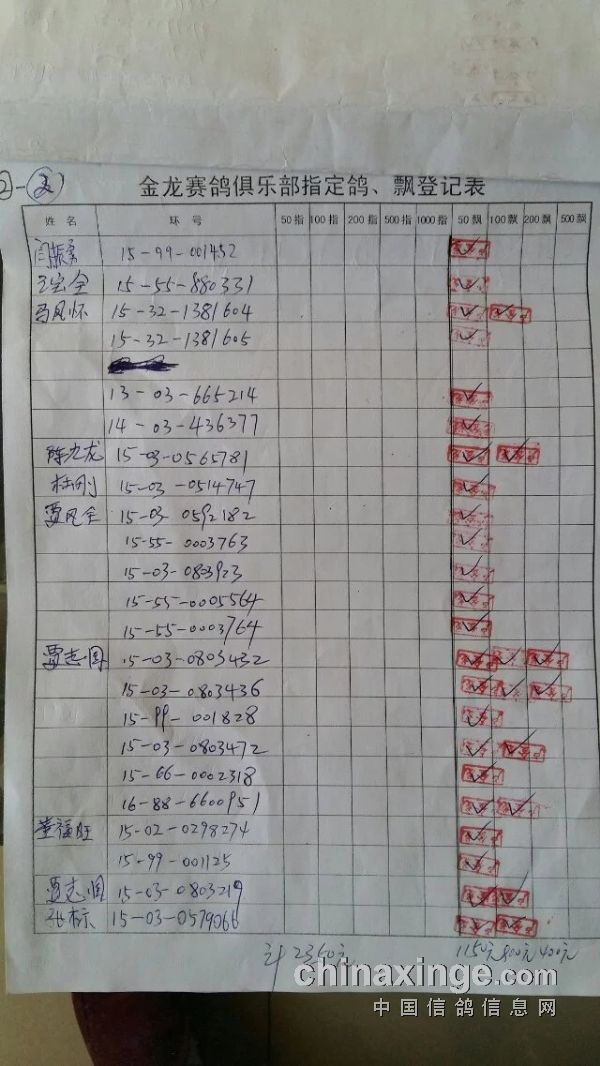 ②-(友)
金龙赛鸽俱乐部指定鸽、飘登记表
姓名 环号 50指 100指 200指 500指 1000指 50飘 100飘 200飘 500飘
闫振勇 15-99-001452
王宝全 15-55-880331
马凤怀 15-32-1381604
15-32-1381605
13-03-665214
14-03-436377
陈九龙 15-03-0565781
杜刚 15-03-0514747
贾凤全 15-03 0592182
15-55-0003763
15-03-0803923
15-55-0005564
15-55-0003764
贾志国 15-03-0803432
15-03-0803436
15-99-001828
15-03-0803472
15-66-0002318
16-88-6600951
董福旺 15-02-0298274
15-99-001125
贾志国 15-03-0803219
张标 15-03-0579066
计2350元 1150元 800元 400元
chinaxinge.com
中国信鸽信息网